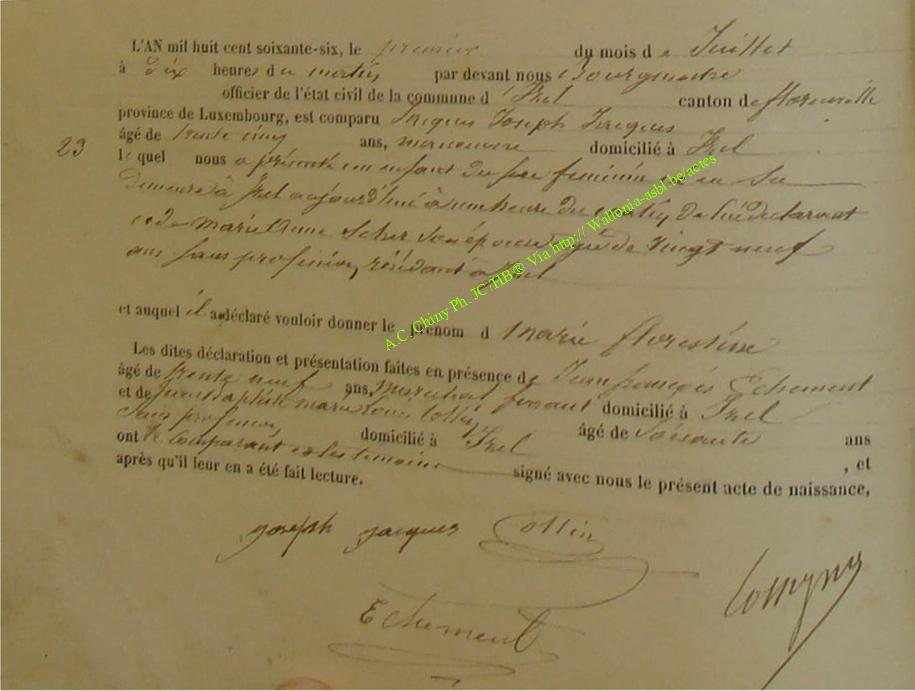 L'AN mil huit cent soixante-six, le premier du mois de Juillet
à Dix heures du matin par devant nous Bourgmestre
officier de l'état civil de la commune d'Izel canton de florenville
province de Luxembourg, est comparu Jacques Joseph Jacques
23
âgé de trente cinq ans, manoeuvre domicilié à Izel
lequel nous a présenté un enfant du sexe féminin né en sa
demeure à Izel aujourd'hui à une heure du matin de lui déclarant
et de Marie Anne son épouse âgée de vingt neuf
ans sans profession, résidant à Izel
et auquel il a déclaré vouloir donner le prénom d Marie florestine
Les dites déclaration et présentation faites en présence de Jean françois Echement
âgé de trente neuf ans, Marechal ferrant domicilié à Izel
et de Jean Baptiste marie Collin âgé de Soixante ans
Sans profession domicilié à Izel , et
ont le comparant et les témoins signé avec nous le présent acte de naissance,
après qu'il leur en a été fait lecture.
Joseph Jacques Collin
Echement
A.C. Chiny Ph. JC7HB® Via http:// Wallonia-asbl be/actes